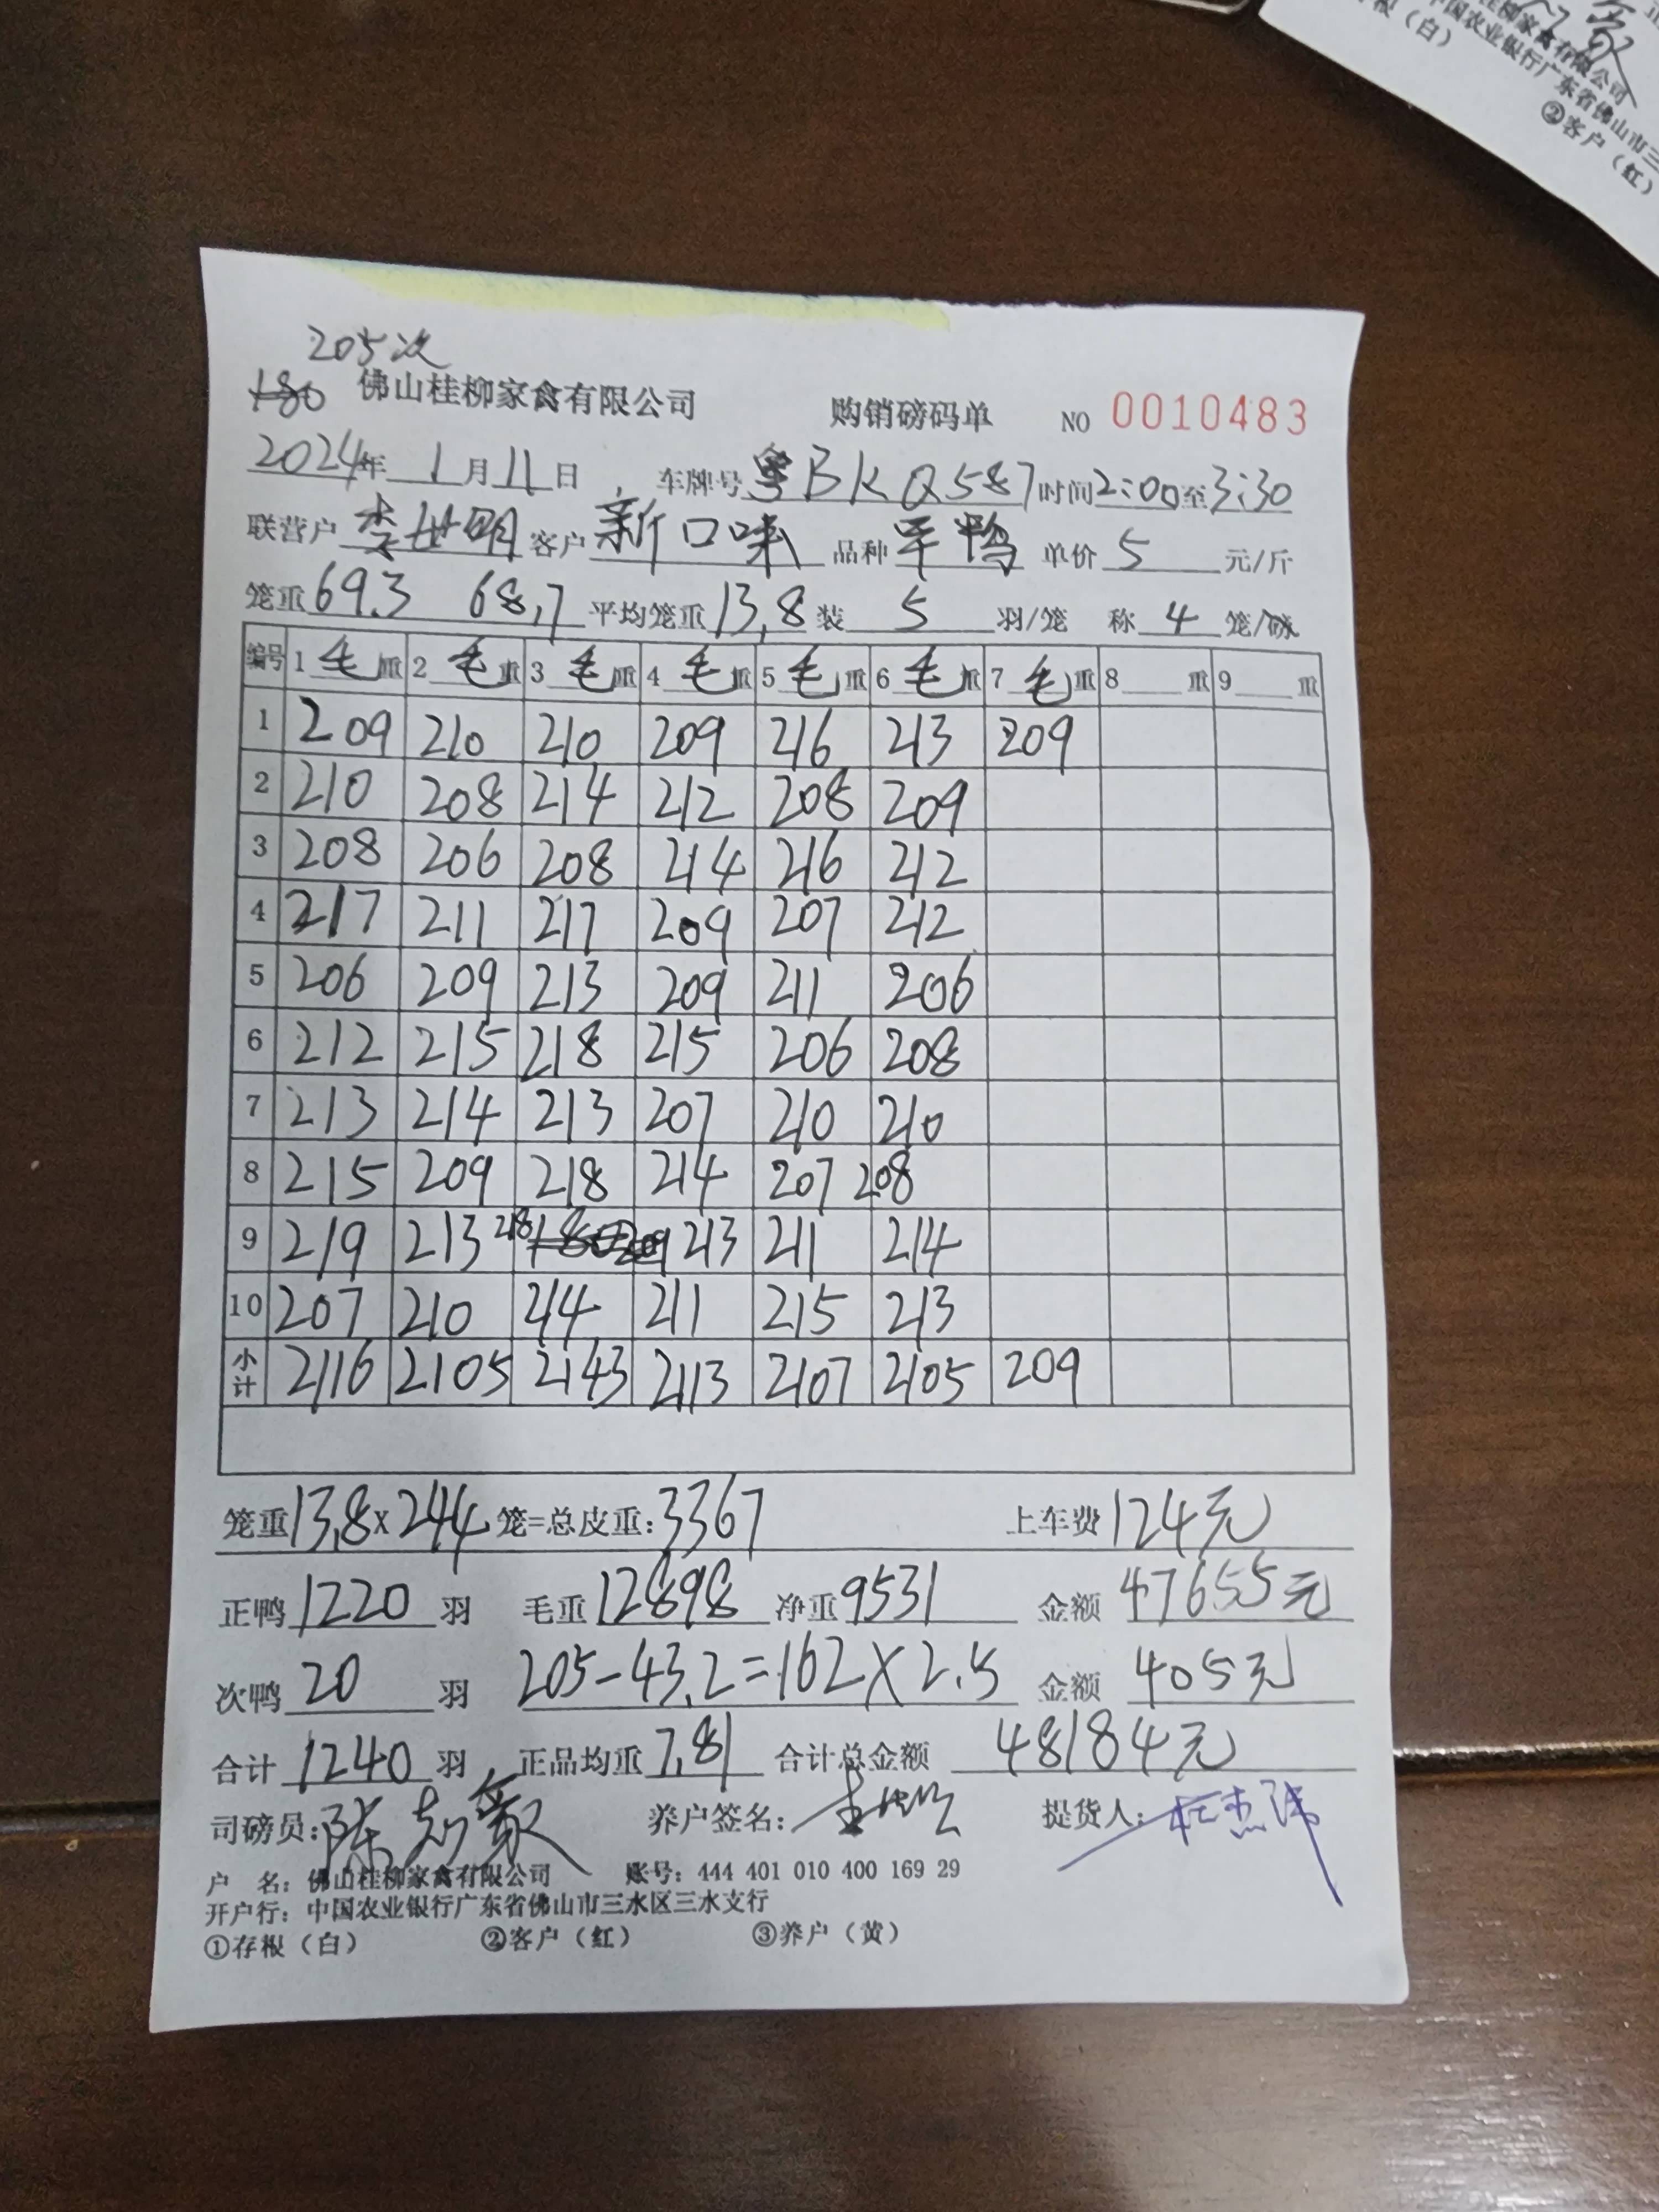 205次
180 佛山桂柳家禽有限公司 购销磅码单 NO 0010483
2024年 1月11日 车牌号 粤BKQ587 时间2:00至3:30
联营户 李世明 客户 新口味 品种 军鸭 单价 5 元/斤
笼重 69.3 68,7 平均笼重 13,8 装 5 羽/笼 称 4 笼/磅
编号 1 毛 重 2 毛 重 3 毛 重 4 毛 重 5 毛 重 6 毛 重 7 毛 重 8 重 9 重
1 209 210 210 209 216 213 209
2 210 208 214 212 208 209
3 208 206 208 214 216 212
4 217 211 217 209 207 212
5 206 209 213 209 211 206
6 212 215 218 215 206 208
7 213 214 213 207 210 210
8 215 209 218 214 207 208
9 219 213 218 180 209 213 211 214
10 207 210 214 211 215 213
小计 2116 2105 2143 2113 2107 2105 209
笼重 13,8 x 244 笼=总皮重: 3367 上车费 124元
正鸭 1220 羽 毛重 12898 净重 9531 金额 47655元
次鸭 20 羽 205-43,2=162X2.5 金额 405元
合计 1240 羽 正品均重 7,81 合计总金额 48184元
司磅员: 养户签名: 提货人:
户 名: 佛山桂柳家禽有限公司 账号: 444 401 010 400 169 29
开户行: 中国农业银行广东省佛山市三水区三水支行
①存根（白） ②客户（红） ③养户（黄）
桂柳家禽有限公司
中国农业银行广东省佛山市三
存根（白）
②客户（红）